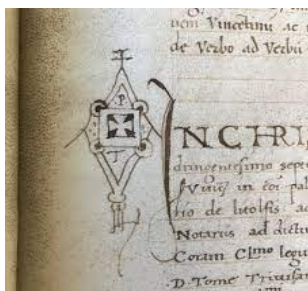 uem Vincetinu ac
de Verbo ad Verbū
P
T
INCHRI
dringentesimo sep
in eoi pal
rio de litolfis ac
Notarus ad dictu
Coram Clmo legu
.D. Tome Triuisan